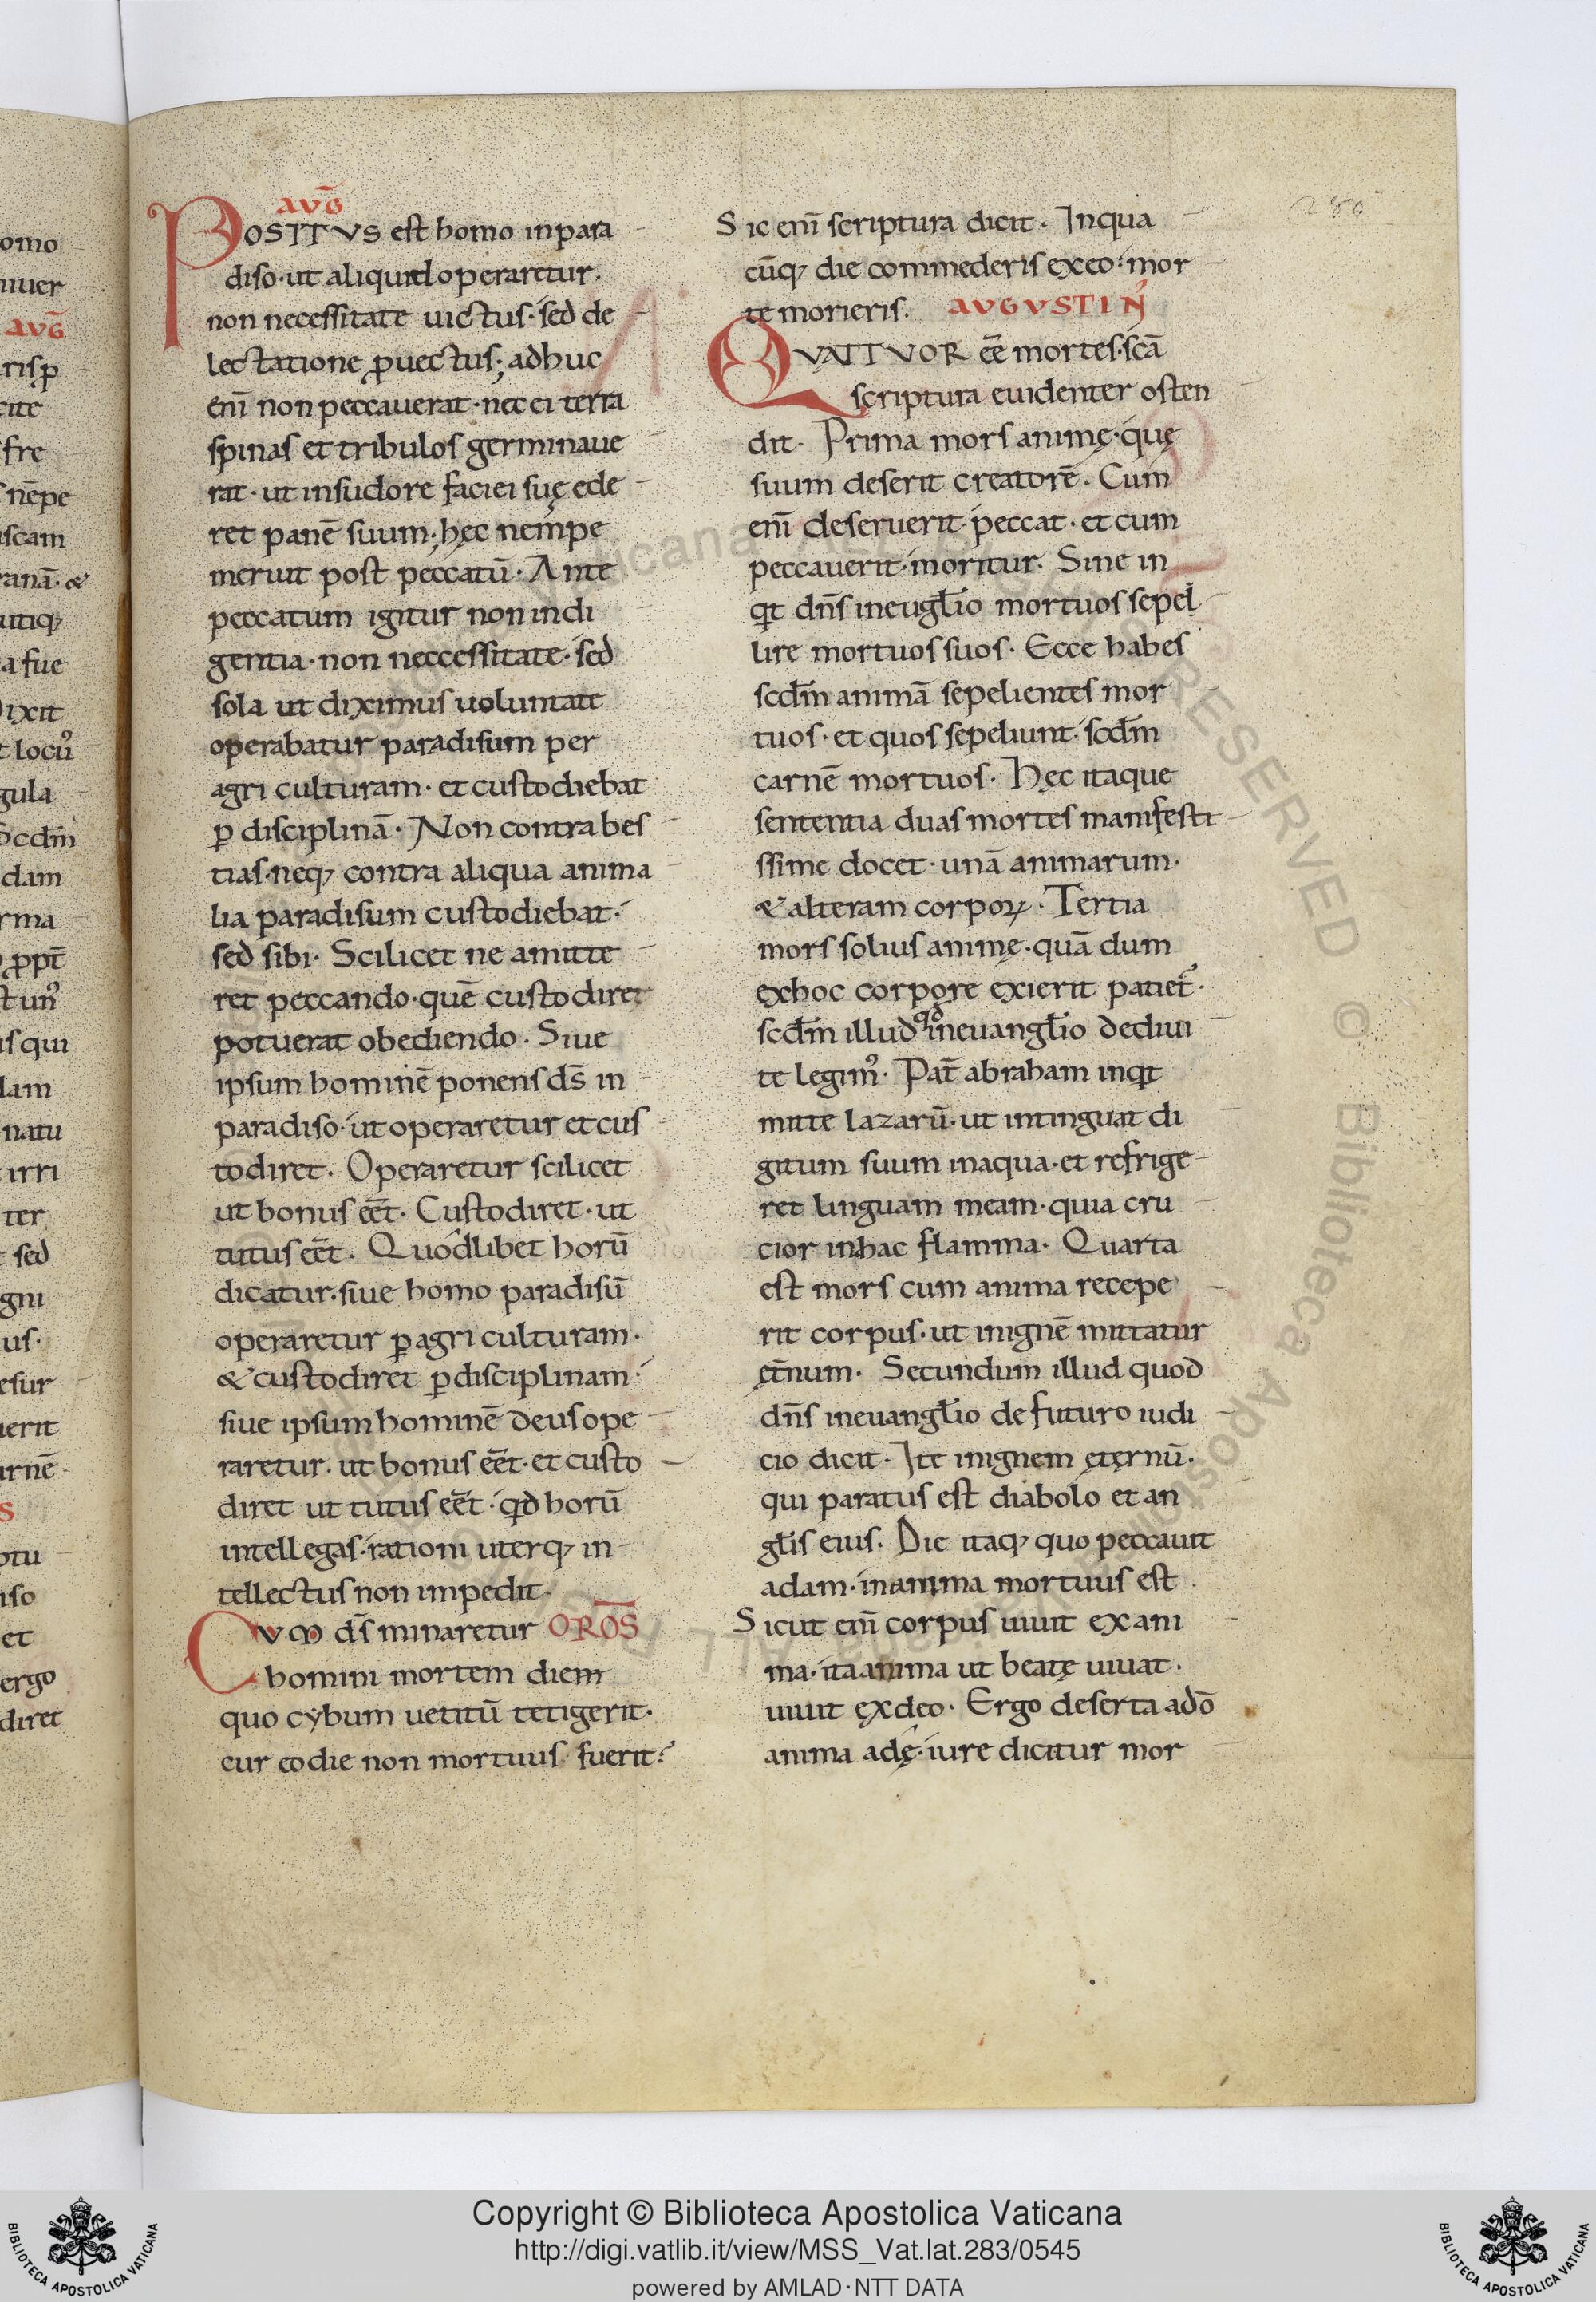 omo
nuer
AVḠ
risꝑ
cite
fre
nēpe
scam
ranā· &
utiqꝫ
a fue
Dixit
t locꝰ
gula
Scdm̄
dam
rma
ꝓpt̄
t unꝰ
is qui
lam
natu
irri
ter
sed
gni
us·
esur
uerit
arnē·
S
otu
iso
et
ergo
diret
AVḠ
POSITVS est homo inpara
diso· ut aliquid operaretur·
non necessitate uictus· sed de
lectatione ꝓuectus; adhuc
eni̅ non peccauerat· nec ei terra
spinas et tribulos germinaue
rat· ut insudore faciei suę ede
ret panē suum· hęc nempe
meruit post peccatū· Ante
peccatum igitur non indi
gentia· non neccessitate· sed
sola ut diximus uoluntate
operabatur paradisum per
agri culturam· et custodiebat
ꝑ disciplinā· Non contra bes
tias· neqꝫ contra aliqua anima
lia paradisum custodiebat·
sed sibi· Scilicet ne amitte
ret peccando· quē custodire
potuerat obediendo· Siue
ipsum hominē ponens ds̄ in
paradiso· ut operaretur et cus
todiret· Operaretur scilicet
ut bonus eēt· Custodiret· ut
tutus eēt· Quodlibet horū
dicatur· siue homo paradisū
operaretur ꝑ agri culturam·
& custodiret ꝑ disciplinam·
siue ipsum hominē deus ope
raretur· ut bonus eēt· et custo
diret ut tutus eēt· qd̄ horū
intellegas· rationi uterqꝫ in
tellectus non impedit·
CVM ds̄ minaretur OROS̄
homini mortem diem
quo cybum uetitū tetigerit·
cur eodie non mortuus fuerit?
Sic eni̅ scriptura dicit· Inqua
cūqꝫ die commederis exeo· mor
te morieris· AVGVSTINꝰ
QVATTVOR eē mortes· scā
scriptura euidenter osten
dit· Prima mors animę· quę
suum deserit creatorē· Cum
eni̅ deseruerit· peccat· et cum
peccauerit· moritur· Sine in
qt dn̄s ineugl̄io mortuos sepel
lire mortuos suos· Ecce habes
scdm̄ animā sepelientes mor
tuos· et quos sepeliunt· scdm̄
carnē mortuos· Hęc itaque
sententia duas mortes manifesti
ssime docet· unā animarum·
& alteram corpoꝝ· Tertia
mors solius animę· quā dum
exhoc corpore exierit patiet̄·
scdm̄ illud qd̄ ineuangl̄io dediui
te legimꝰ· Pat̄ abraham inqt
mitte lazarū· ut intinguat di
gitum suum inaqua· et refrige
ret linguam meam· quia cru
cior inhac flamma· Quarta
est mors cum anima recepe
rit corpus· ut inignē mittatur
ęt̄num· Secundum illud quod
dn̄s ineuangl̄io de futuro iudi
cio dicit· Ite inignem ęternū·
qui paratus est diabolo et an
gl̄is eius· Die itaqꝫ quo peccauit
adam· inanima mortuus est
Sicut eni̅ corpus uiuit ex ani
ma· ita anima ut beatę uiuat·
uiuit exdeo· Ergo deserta adō
anima adę· iure dicitur mor
286
Copyright © Biblioteca Apostolica Vaticana
http://digi.vatlib.it/view/MSS_Vat.lat.283/0545
powered by AMLAD·NTT DATA
BIBLIOTECA APOSTOLICA VATICANA
BIBLIOTECA APOSTOLICA VATICANA